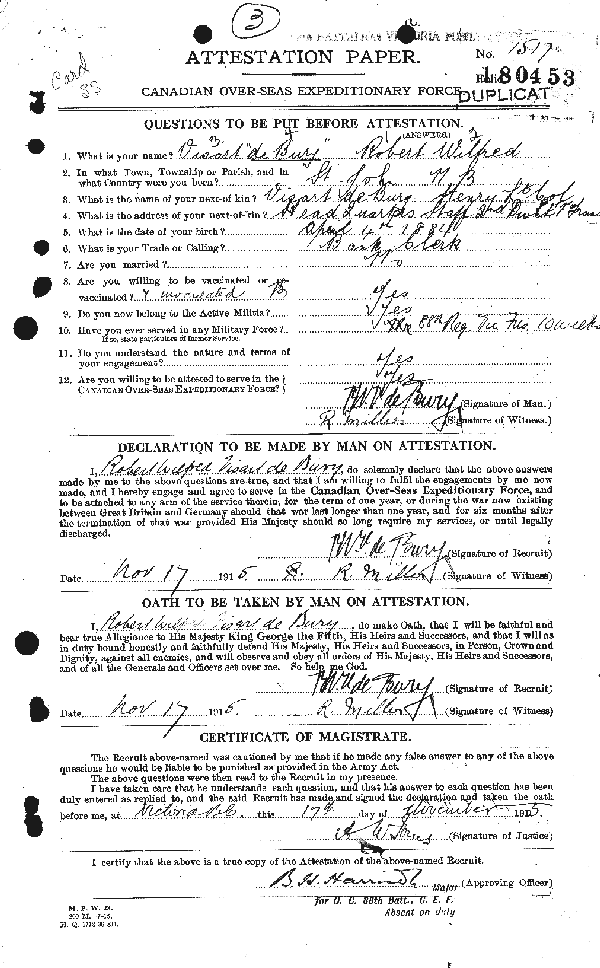 3
Card
ATTESTATION PAPER.
No. 1517
180453
CANADIAN OVER-SEAS EXPEDITIONARY FORCE
DUPLICAT
QUESTIONS TO BE PUT BEFORE ATTESTATION.
(ANSWERS)
1. What is your name? Visart "de Bury" Robert Wilfred
2. In what Town, Township or Parish, and in
what Country were you born? St John N B
3. What is the name of your next-of-kin? Visart de Bury Henry Lt Col
4. What is the address of your next-of-kin? Head Quarters Staff 2nd
5. What is the date of your birth? April 4th 1884
6. What is your Trade or Calling? Bank Clerk
7. Are you married? No
8. Are you willing to be vaccinated or re-
vaccinated? & inoculated Yes
9. Do you now belong to the Active Militia? Yes
10. Have you ever served in any Military Force? 88th Reg Vic Fus 10 weeks
If so, state particulars of former Service.
11. Do you understand the nature and terms of
your engagement? Yes
12. Are you willing to be attested to serve in the
CANADIAN OVER-SEAS EXPEDITIONARY FORCE? Yes
RWV de Bury (Signature of Man.)
R. Miller (Signature of Witness.)
DECLARATION TO BE MADE BY MAN ON ATTESTATION.
I, Robert Wilfred Visart de Bury, do solemnly declare that the above answers
made by me to the above questions are true, and that I am willing to fulfil the engagements by me now
made, and I hereby engage and agree to serve in the Canadian Over-Seas Expeditionary Force, and
to be attached to any arm of the service therein, for the term of one year, or during the war now existing
between Great Britain and Germany should that war last longer than one year, and for six months after
the termination of that war provided His Majesty should so long require my services, or until legally
discharged.
RWV de Bury (Signature of Recruit)
Date Nov 17 1915 R. Miller (Signature of Witness)
OATH TO BE TAKEN BY MAN ON ATTESTATION.
I, Robert Wilfred Visart de Bury, do make Oath, that I will be faithful and
bear true Allegiance to His Majesty King George the Fifth, His Heirs and Successors, and that I will as
in duty bound honestly and faithfully defend His Majesty, His Heirs and Successors, in Person, Crown and
Dignity, against all enemies, and will observe and obey all orders of His Majesty, His Heirs and Successors,
and of all the Generals and Officers set over me. So help me God.
RWV de Bury (Signature of Recruit)
Date Nov 17 1915. R. Miller (Signature of Witness)
CERTIFICATE OF MAGISTRATE.
The Recruit above-named was cautioned by me that if he made any false answer to any of the above
questions he would be liable to be punished as provided in the Army Act.
The above questions were then read to the Recruit in my presence.
I have taken care that he understands each question, and that his answer to each question has been
duly entered as replied to, and the said Recruit has made and signed the declaration and taken the oath
before me, at Victoria B.C. this 17th day of November 1915
(Signature of Justice)
I certify that the above is a true copy of the Attestation of the above-named Recruit.
Major (Approving Officer)
for O. C. 88th Batt., C. E. F.
Absent on duty
M. F. W. 23.
200 M. 7-15.
H. Q. 1772-39-841.